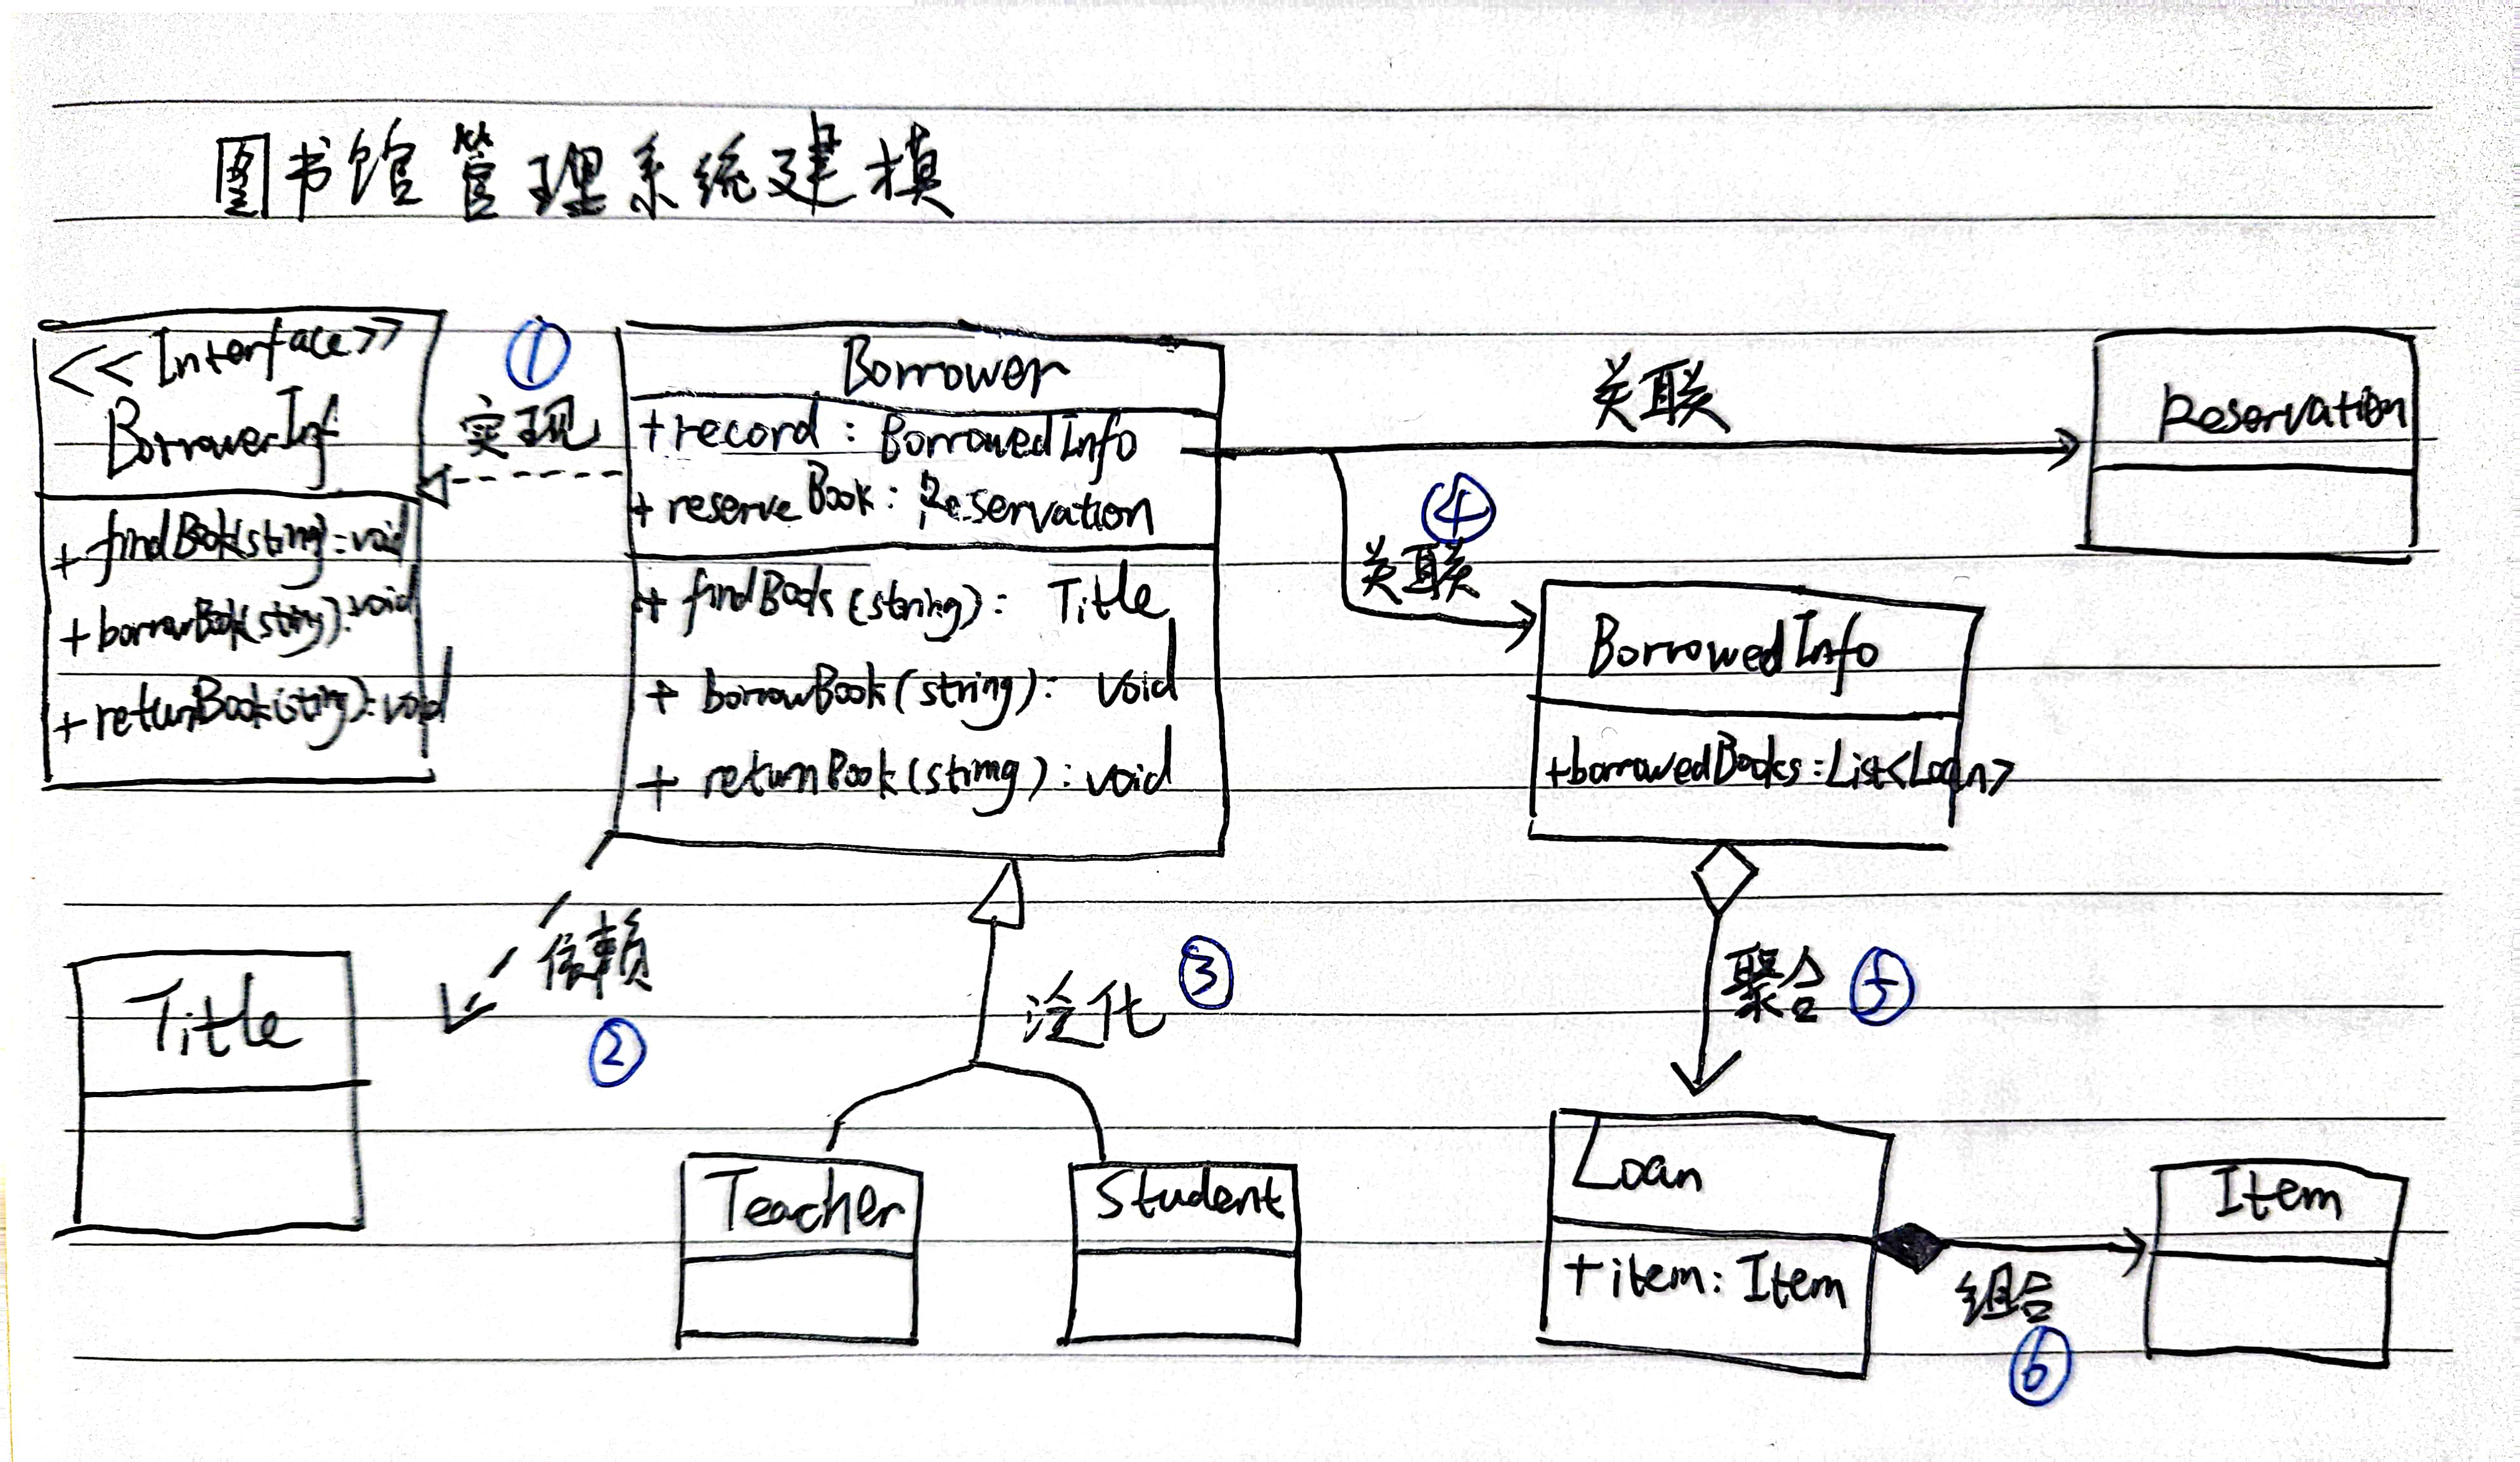 图书馆管理系统建模
<<Interface>>
BorrowerInf
+ findBook(string): void
+ borrowBook(string): void
+ returnBook(string): void
①
实现
Borrower
+ record : BorrowedInfo
+ reserveBook : Reservation
+ findBook(string): Title
+ borrowBook(string): void
+ returnBook(string): void
关联
Reservation
④
关联
BorrowedInfo
+borrowedBooks:List<Loan>
依赖
②
Title
③
泛化
Teacher
Student
聚合 ⑤
Loan
+item: Item
组合
⑥
Item